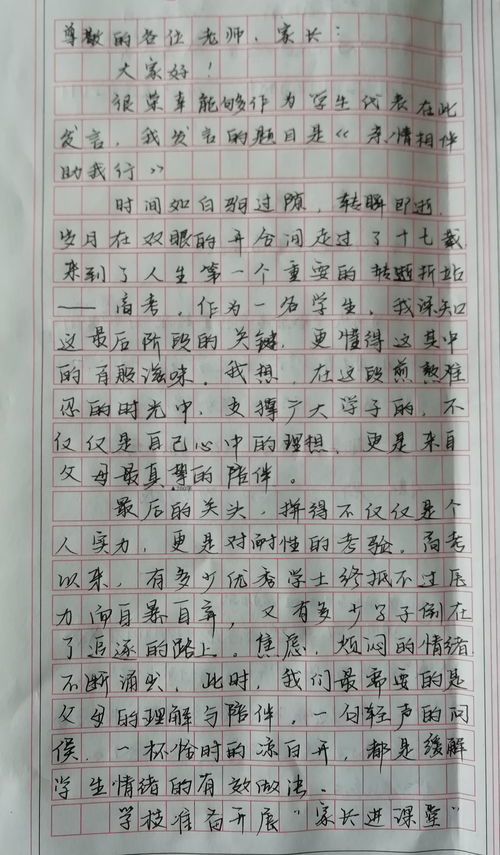 尊敬的各位老师、家长：
大家好！
很荣幸能够作为学生代表在此
发言，我发言的题目是《亲情相伴
助我行》
时间如白驹过隙，转瞬即逝，
岁月在双眼的开合间走过了十七载
来到了人生第一个重要的转折站
——高考，作为一名学生，我深知
这最后阶段的关键，更懂得这其中
的百般滋味。我想，在这段煎熬难
忍的时光中，支撑广大学子的，不
仅仅是自己心中的理想，更是来自
父母最真挚的陪伴。
最后的关头，拼得不仅仅是个
人实力，更是对耐性的考验。高考
以来，有多少优秀学士终抵不过压
力而自暴自弃，又有多少学子倒在
了追逐的路上。焦虑，烦闷的情绪
不断涌尖，此时，我们最需要的是
父母的理解与陪伴，一句轻声的问
候，一杯恰时的凉白开，都是缓解
学生情绪的有效做法。
学校准备开展“家长进课堂”